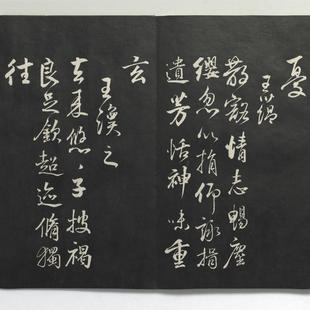 憂
王蘊
散豁情志暢塵
纓忽以捐仰詠挹
遺芳恬神味重
玄
王渙之
去来悠〻子披褐
良足欽超迹脩獨
往